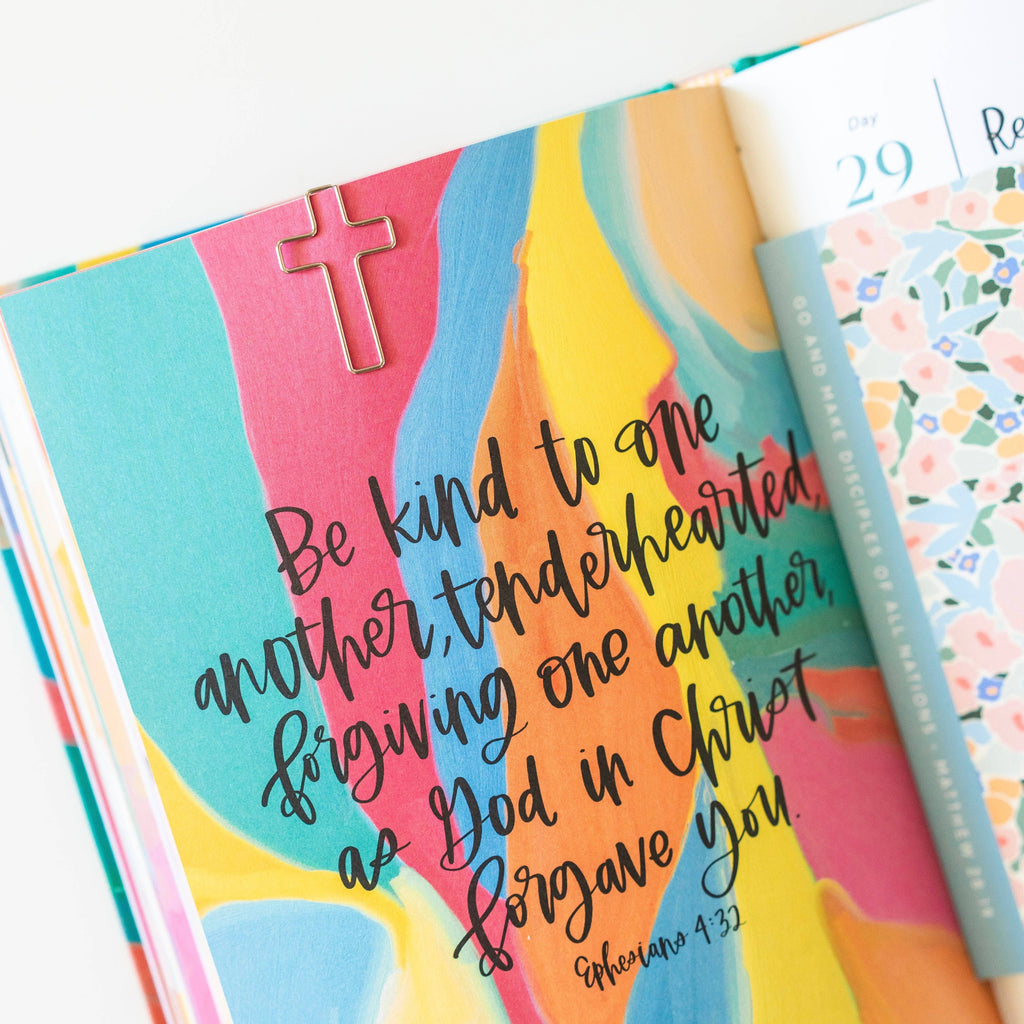 Be kind to one
another, tenderhearted,
forgiving one another,
as God in Christ
forgave you.
Ephesians 4:32
Day
29
GO AND MAKE DISCIPLES OF ALL NATIONS • MATTHEW 28:19